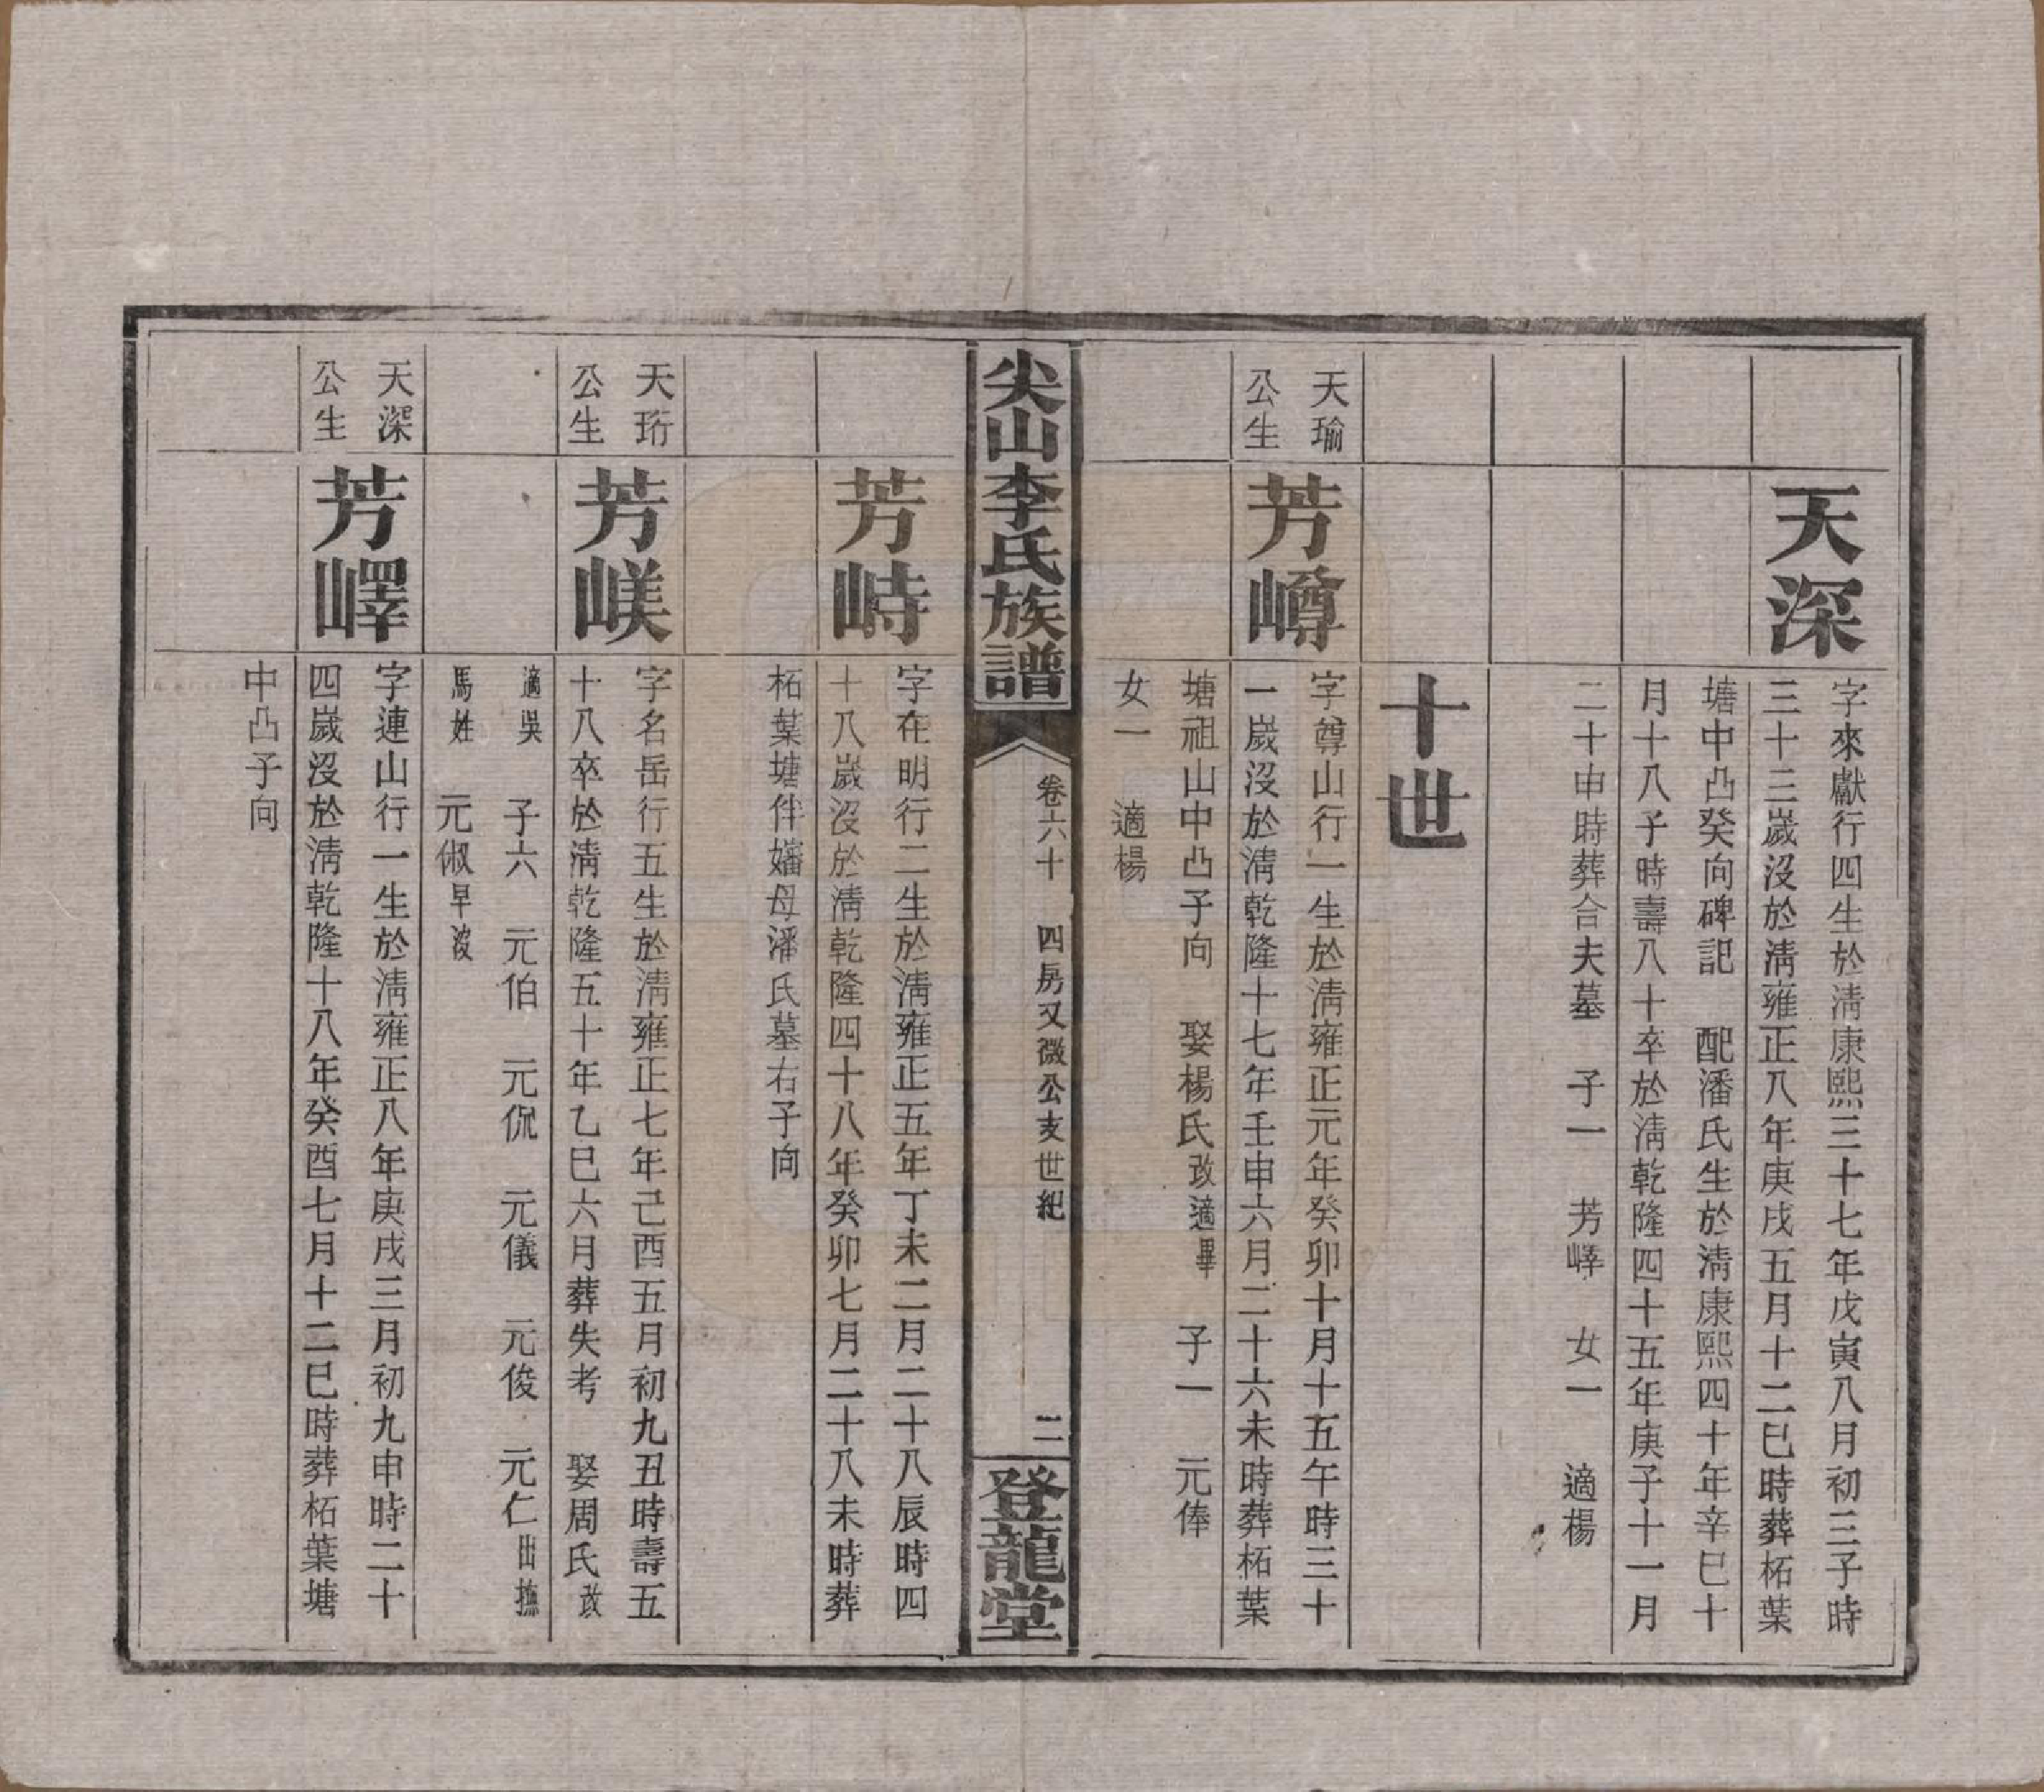 天深
字來獻行四生於清康熙三十七年戊寅八月初三子時
三十三歲沒於清雍正八年庚戌五月十二巳時葬柘葉
塘中凸癸向碑記　配潘氏生於清康熙四十年辛巳十
月十八子時壽八十卒於清乾隆四十五年庚子十一月
二十申時葬合夫墓　子一　芳嶧　女一　適楊
十世
天瑜
公生
芳嶟
字尊山行一生於清雍正元年癸卯十月十五午時三十
一歲沒於清乾隆十七年壬申六月二十六未時葬柘葉
塘祖山中凸子向　娶楊氏改適畢　子一　元俸
女一　適楊
尖山李氏族譜
卷六十　四房又微公支世紀
二
登龍堂
芳峙
字在明行二生於清雍正五年丁未二月二十八辰時四
十八歲沒於清乾隆四十八年癸卯七月二十八未時葬
柘葉塘伴嬸母潘氏墓右子向
天珩
公生
芳嵄
字名岳行五生於清雍正七年己酉五月初九丑時壽五
十八卒於清乾隆五十年乙巳六月葬失考　娶周氏改
適吳　子六　元伯　元侃　元儀　元俊　元仁出撫
馬姓　元俶早沒
天深
公生
芳嶧
字連山行一生於清雍正八年庚戌三月初九申時二十
四歲沒於清乾隆十八年癸酉七月十二巳時葬柘葉塘
中凸子向